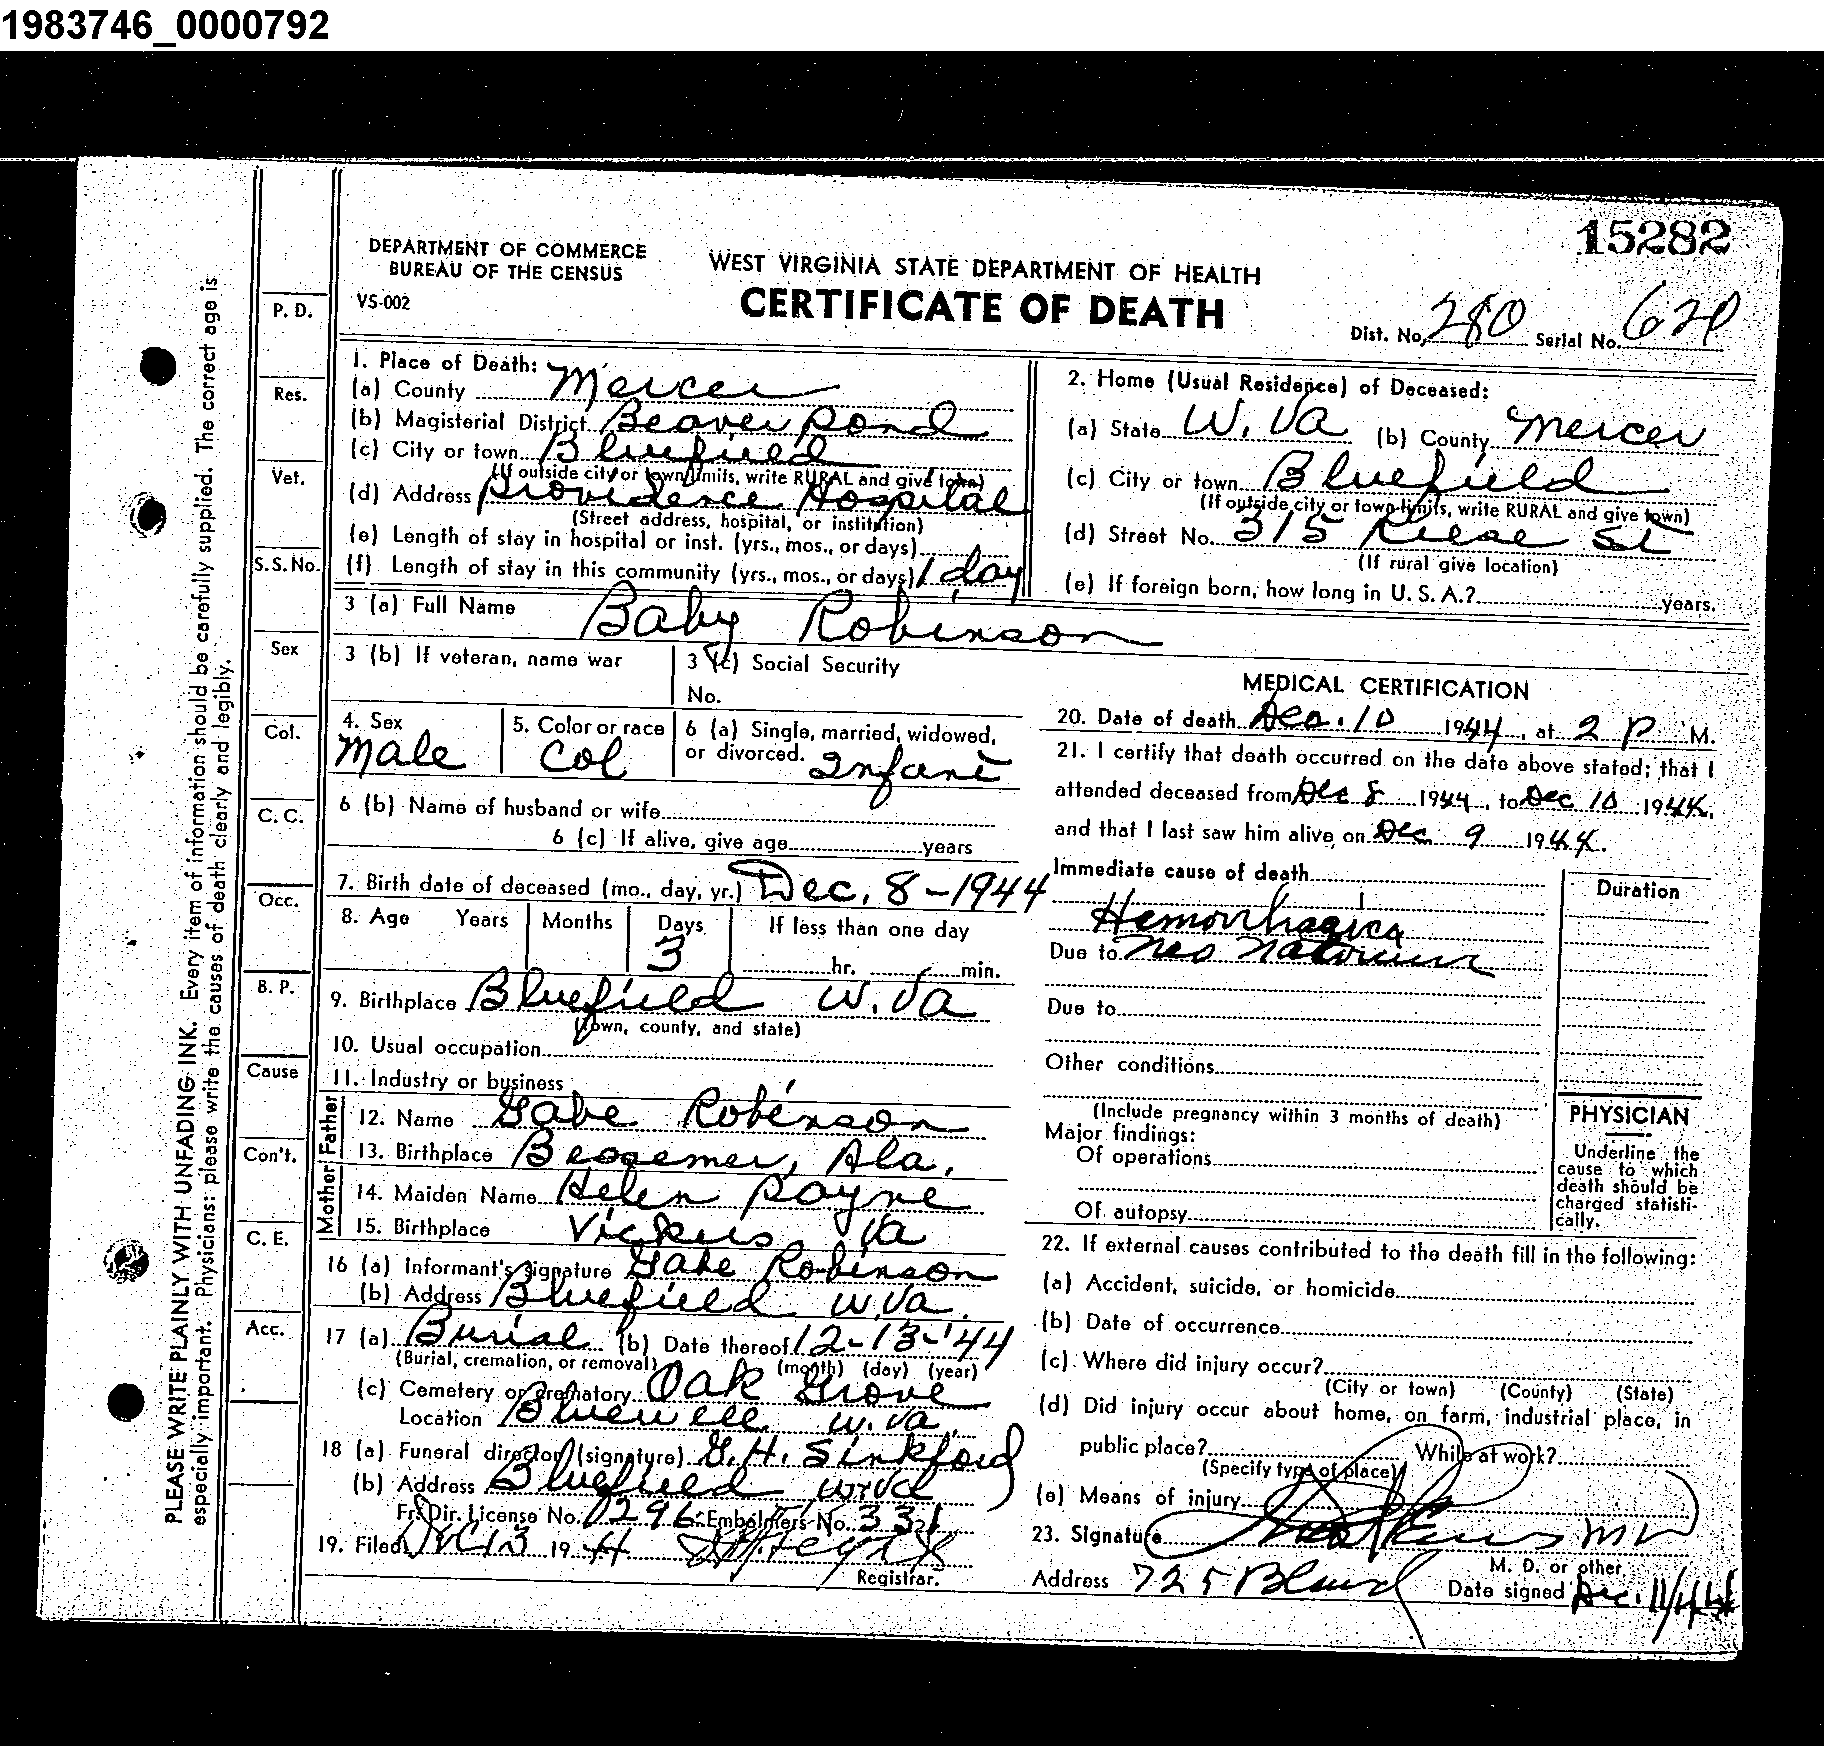 1983746_0000792
15282
DEPARTMENT OF COMMERCE
BUREAU OF THE CENSUS
VS-002
WEST VIRGINIA STATE DEPARTMENT OF HEALTH
CERTIFICATE OF DEATH
Dist. No. 280 Serial No. 620
PLEASE WRITE PLAINLY WITH UNFADING INK. Every item of information should be carefully supplied. The correct age is
especially important. Physicians: please write the causes of death clearly and legibly.
P. D.
Res.
Vet.
S. S. No.
Sex
Col.
C. C.
Occ.
B. P.
Cause
Con't.
C. E.
Acc.
1. Place of Death:
(a) County Mercer
(b) Magisterial District Beaver Pond
(c) City or town Bluefield
(If outside city or town limits, write RURAL and give town)
(d) Address Providence Hospital
(Street address, hospital, or institution)
(e) Length of stay in hospital or inst. (yrs., mos., or days)
(f) Length of stay in this community (yrs., mos., or days) 1 day
2. Home (Usual Residence) of Deceased:
(a) State W. Va (b) County Mercer
(c) City or town Bluefield
(If outside city or town limits, write RURAL and give town)
(d) Street No. 315 Reese St
(If rural give location)
(e) If foreign born, how long in U. S. A.? years.
3 (a) Full Name Baby Robinson
3 (b) If veteran, name war
3 (c) Social Security
No.
4. Sex
Male
5. Color or race
Col
6 (a) Single, married, widowed,
or divorced. Infant
6 (b) Name of husband or wife
6 (c) If alive, give age years
7. Birth date of deceased (mo., day, yr.) Dec. 8-1944
8. Age Years Months Days If less than one day
3 hr. min.
9. Birthplace Bluefield W. Va
(Town, county, and state)
10. Usual occupation
11. Industry or business
Father
12. Name Gabe Robinson
13. Birthplace Bessemer, Ala.
Mother
14. Maiden Name Helen Payne
15. Birthplace Vickers Va
16 (a) Informant's signature Gabe Robinson
(b) Address Bluefield W. Va.
17 (a) Burial (b) Date thereof 12-13-'44
(Burial, cremation, or removal) (month) (day) (year)
(c) Cemetery or crematory Oak Grove
Location Bluewell W. Va.
18 (a) Funeral director (signature) G. H. Sinkford
(b) Address Bluefield W. Va
Fr. Dir. License No. 0296 Embalmers No. 331
19. Filed Dec 13 1944
Registrar.
MEDICAL CERTIFICATION
20. Date of death Dec. 10 1944, at 2 P M.
21. I certify that death occurred on the date above stated; that I
attended deceased from Dec 8 1944, to Dec 10 1944,
and that I last saw him alive on Dec 9 1944.
Immediate cause of death
Duration
Hemorrhagica
Due to Neo Natorium
Due to
Other conditions
(Include pregnancy within 3 months of death)
Major findings:
Of operations
Of autopsy
PHYSICIAN
Underline the
cause to which
death should be
charged statisti-
cally.
22. If external causes contributed to the death fill in the following:
(a) Accident, suicide, or homicide
(b) Date of occurrence
(c) Where did injury occur?
(City or town) (County) (State)
(d) Did injury occur about home, on farm, industrial place, in
public place? While at work?
(Specify type of place)
(e) Means of injury
23. Signature M D
M. D. or other
Address 725 Bland Date signed Dec. 11/44